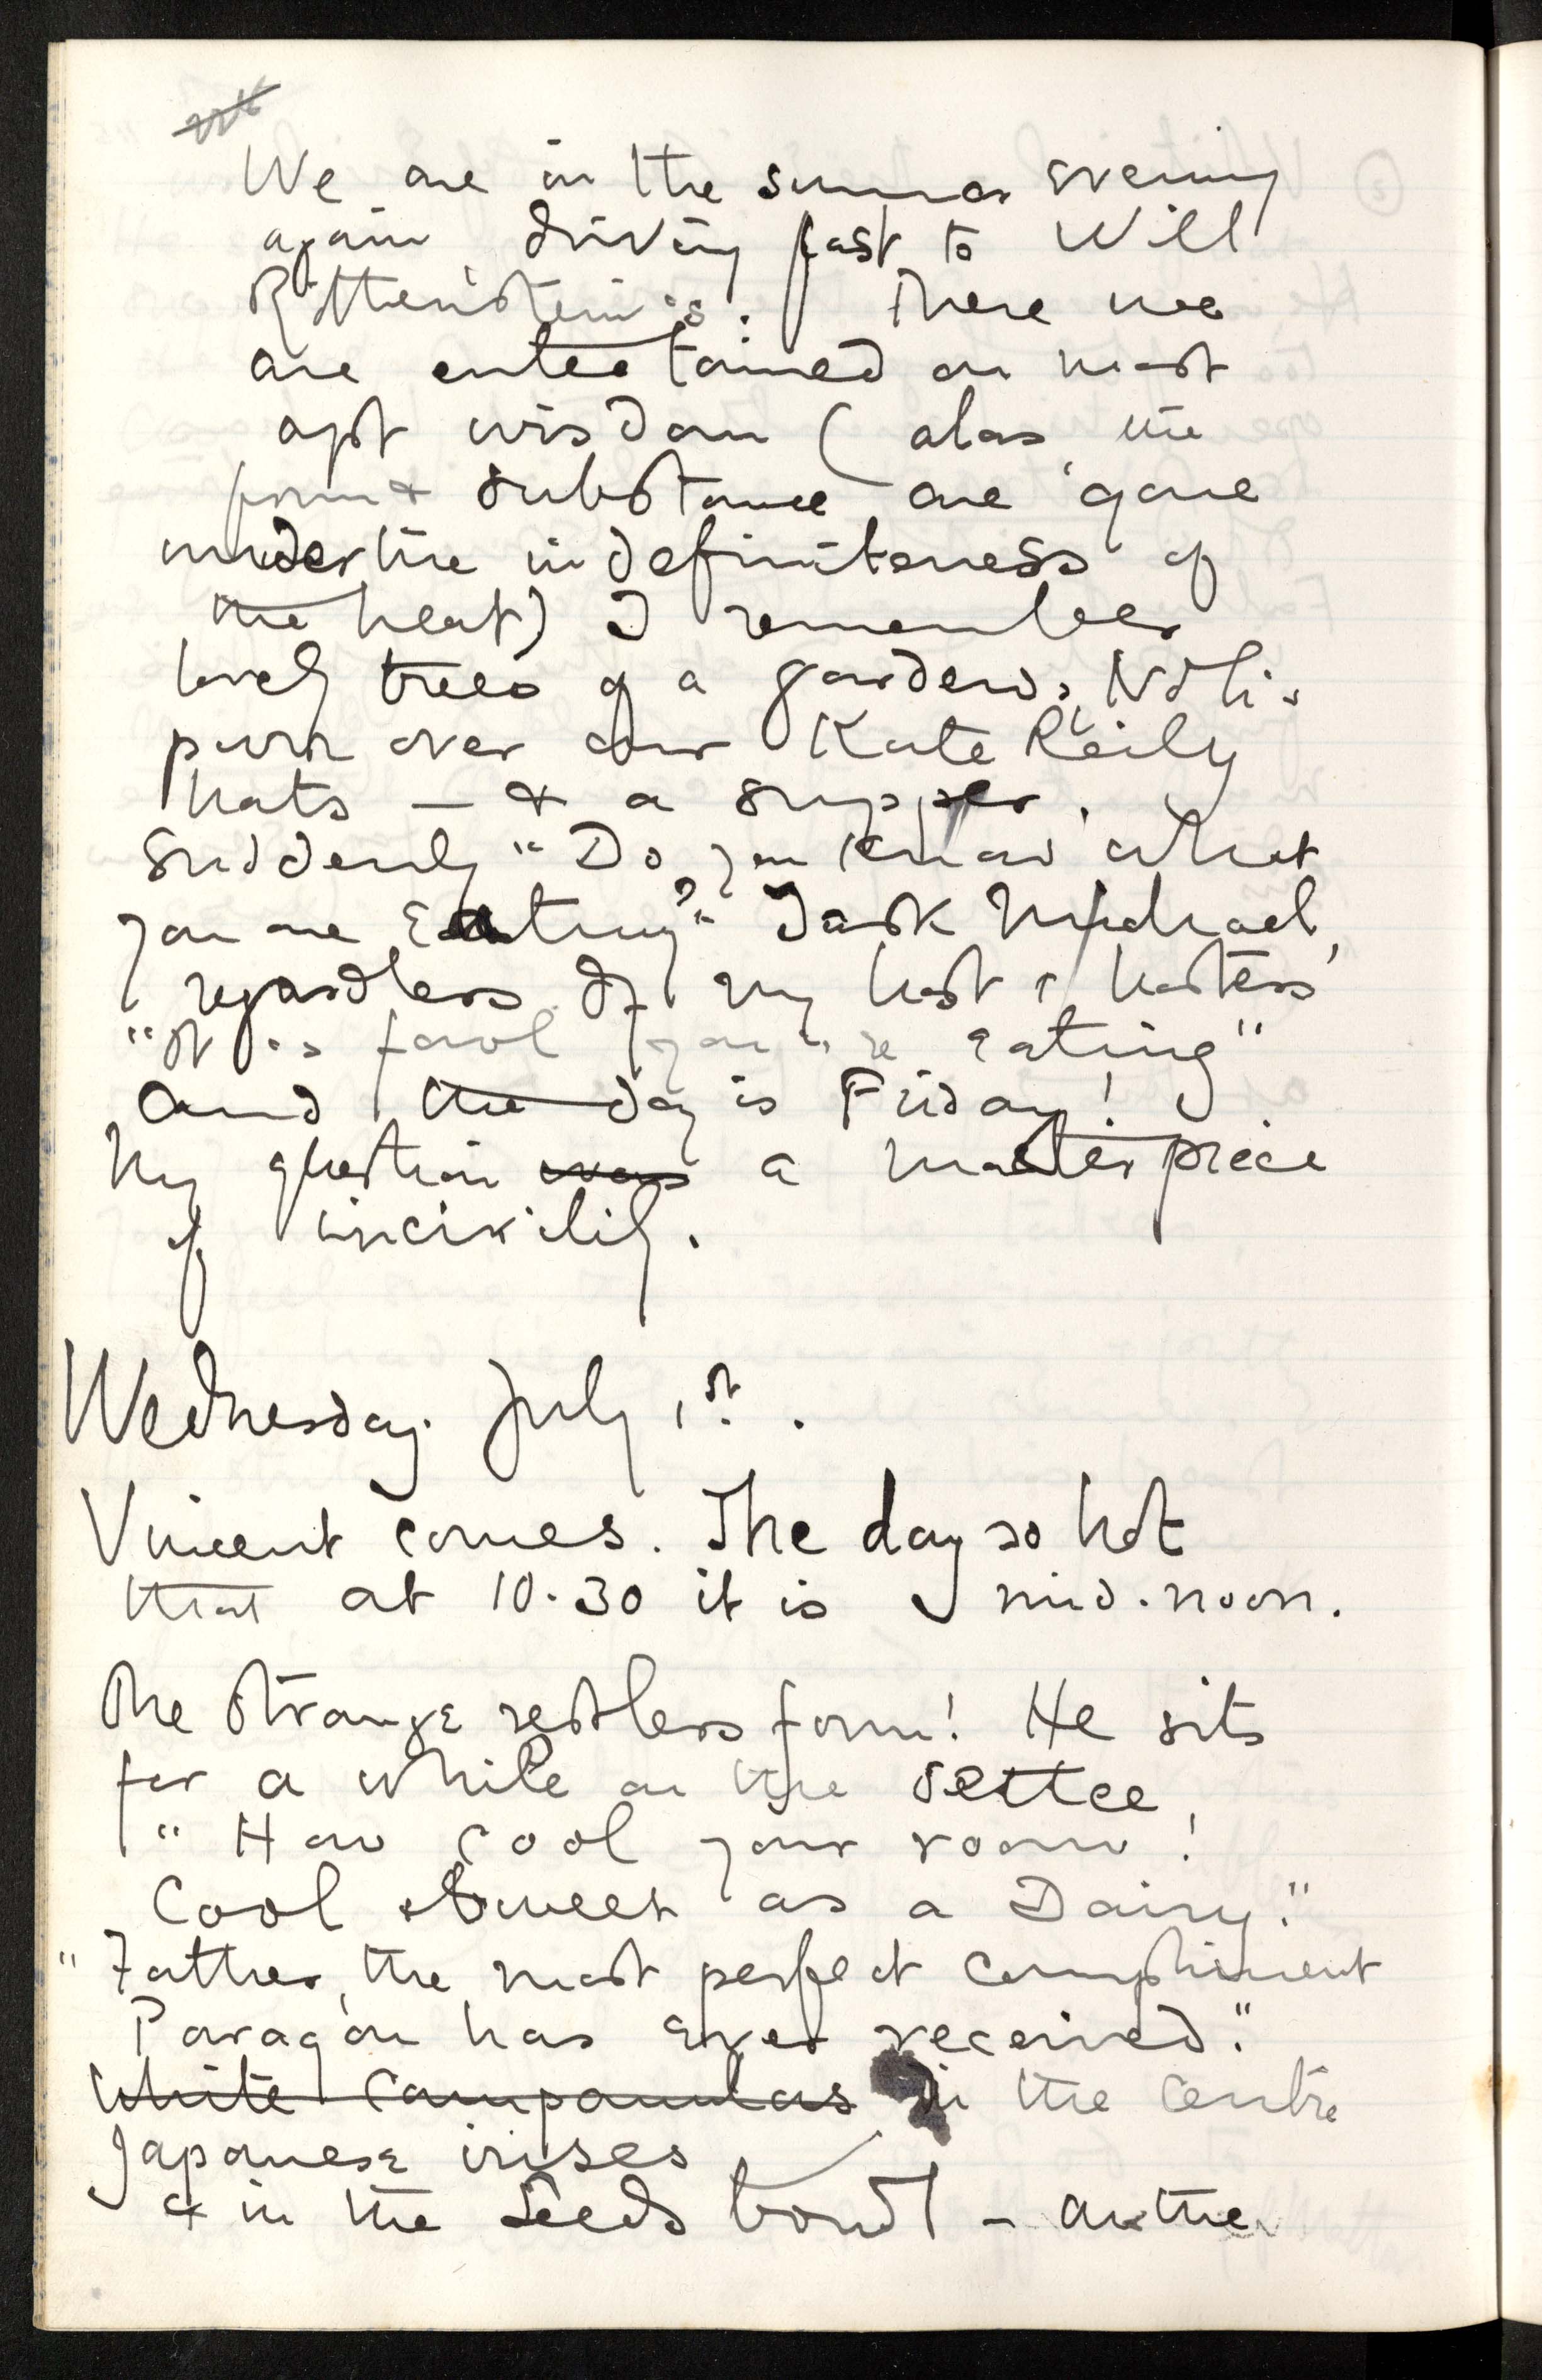 We are in the summer evening
again driving fast to Will
Rothenstein's. There we
are entertained on most
apt wisdom (alas, the
form & substance are gone
under the indefiniteness of
the heat) I remember
lovely trees of a garden,
over our Kate Reily
hats — & a supper.
Suddenly "Do you know what
you are Eating?" I ask Michael,
regardless of my host & hostess
"It is fowl you're eating"
And the day is Friday!
My question was a masterpiece
of incivility.
Wednesday. July 1st.
Vincent comes. The day so hot
that at 10.30 it is mid-noon.
The strange restless form! He sits
for a while on the settee,
"How cool your room!
Cool & sweet as a Dairy."
"Father, the most perfect compliment
Paragon has ever received."
White campanulas in the centre
Japanese irises
& in the Leeds bowl — on the